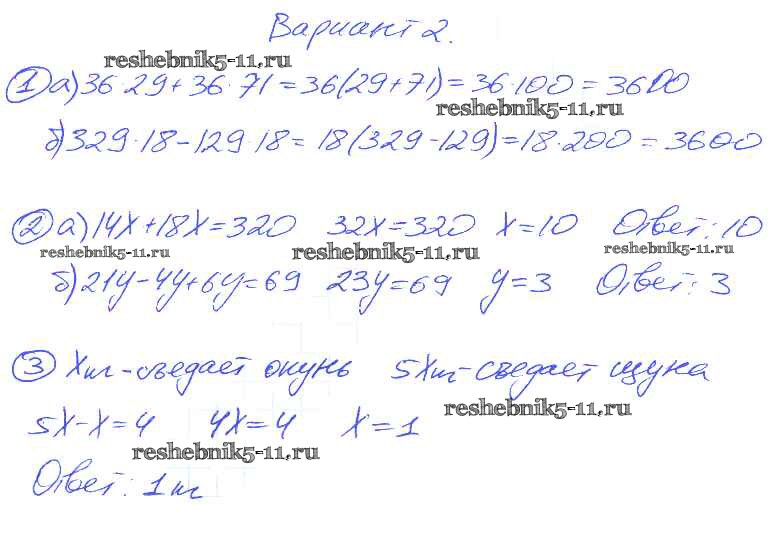 Вариант 2.
reshebnik5-11.ru
① а) 36·29+36·71=36(29+71)=36·100=3600
reshebnik5-11.ru
б) 329·18-129 18=18(329-129)=18·200=3600
② а) 14x+18x=320 32x=320 x=10 Ответ: 10
reshebnik5-11.ru reshebnik5-11.ru reshebnik5-11.ru
б) 21y-4y+6y=69 23y=69 y=3 Ответ: 3
③ xкг-съедает окунь 5xкг-съедает щука
reshebnik5-11.ru
5x-x=4 4x=4 x=1
reshebnik5-11.ru
Ответ: 1кг